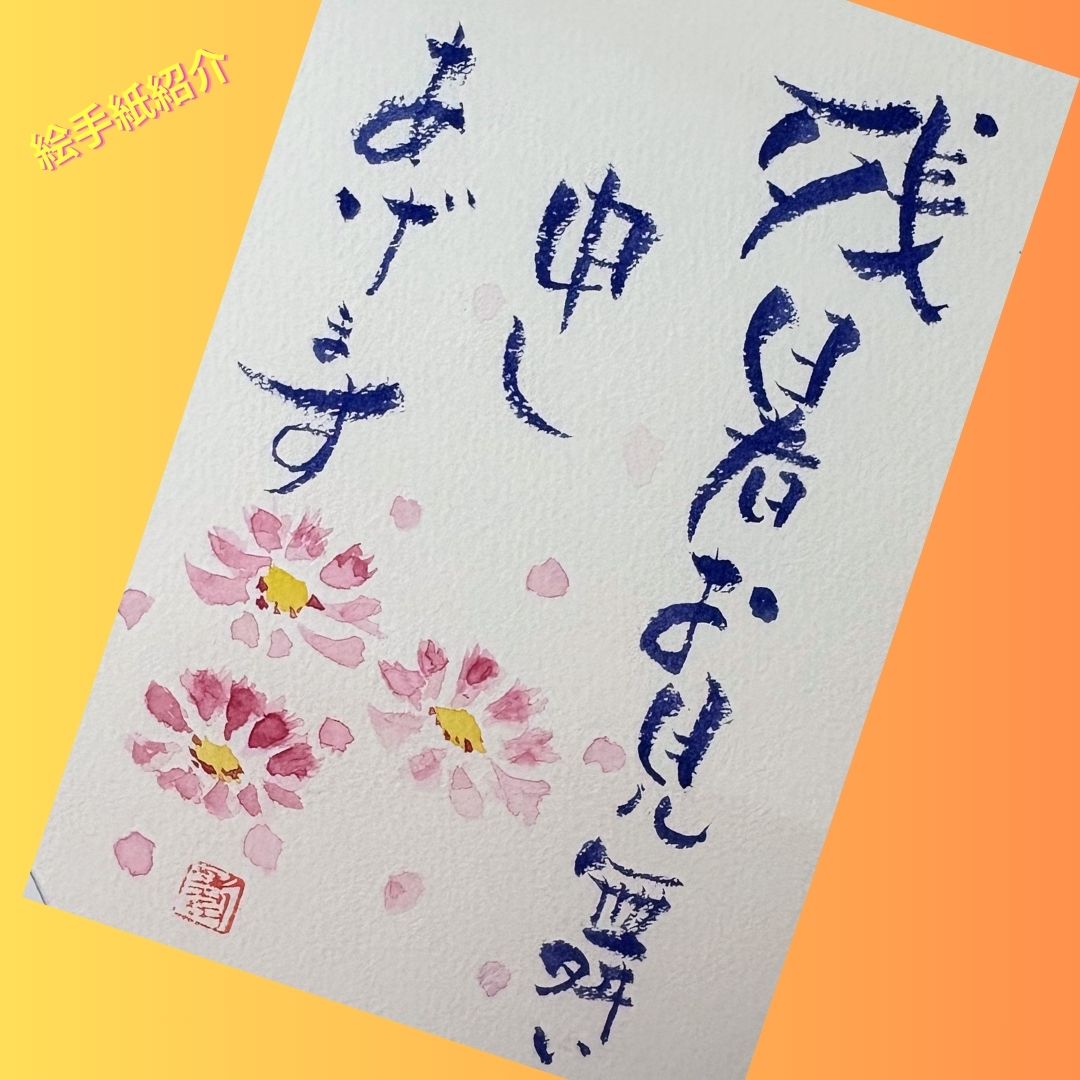 絵手紙紹介
残暑お見舞い
申し
あげます